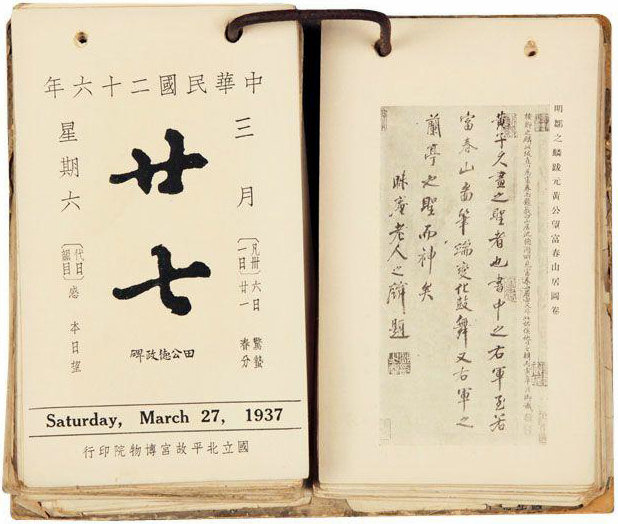 中華民國二十六年
三月
廿七
星期六
〔凡卅一日〕
六日 驚蟄
廿一 春分
〔代日韻目〕感 本日望
田公德政碑
Saturday, March 27, 1937
國立北平故宮博物院印行
明鄒之麟跋元黃公望富春山居圖卷
黃子久畫之聖者也書中之右軍至若
富春山圖筆端變化鼓舞又右軍之
蘭亭也聖而神矣
昧庵老人之麟題